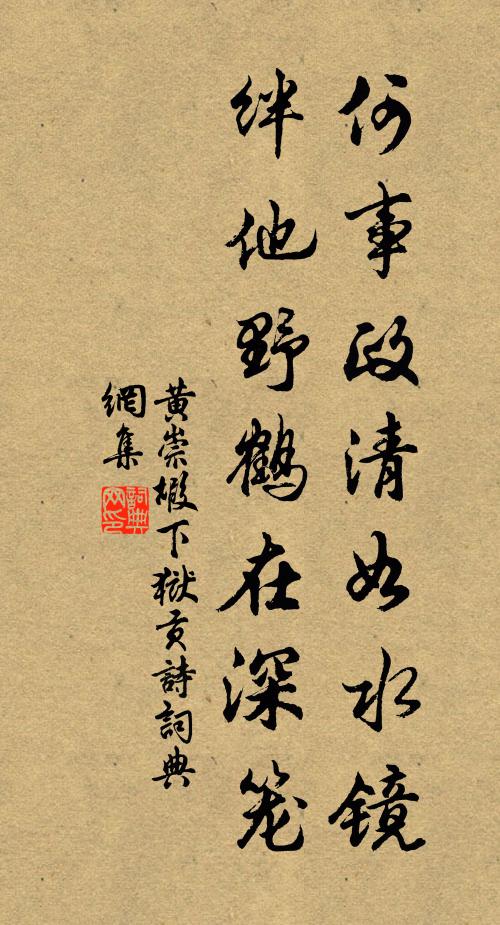 何事政清如水镜
绊他野鹤在深笼
黄崇嘏下獄贡詩詞典
網集
詞典
网印